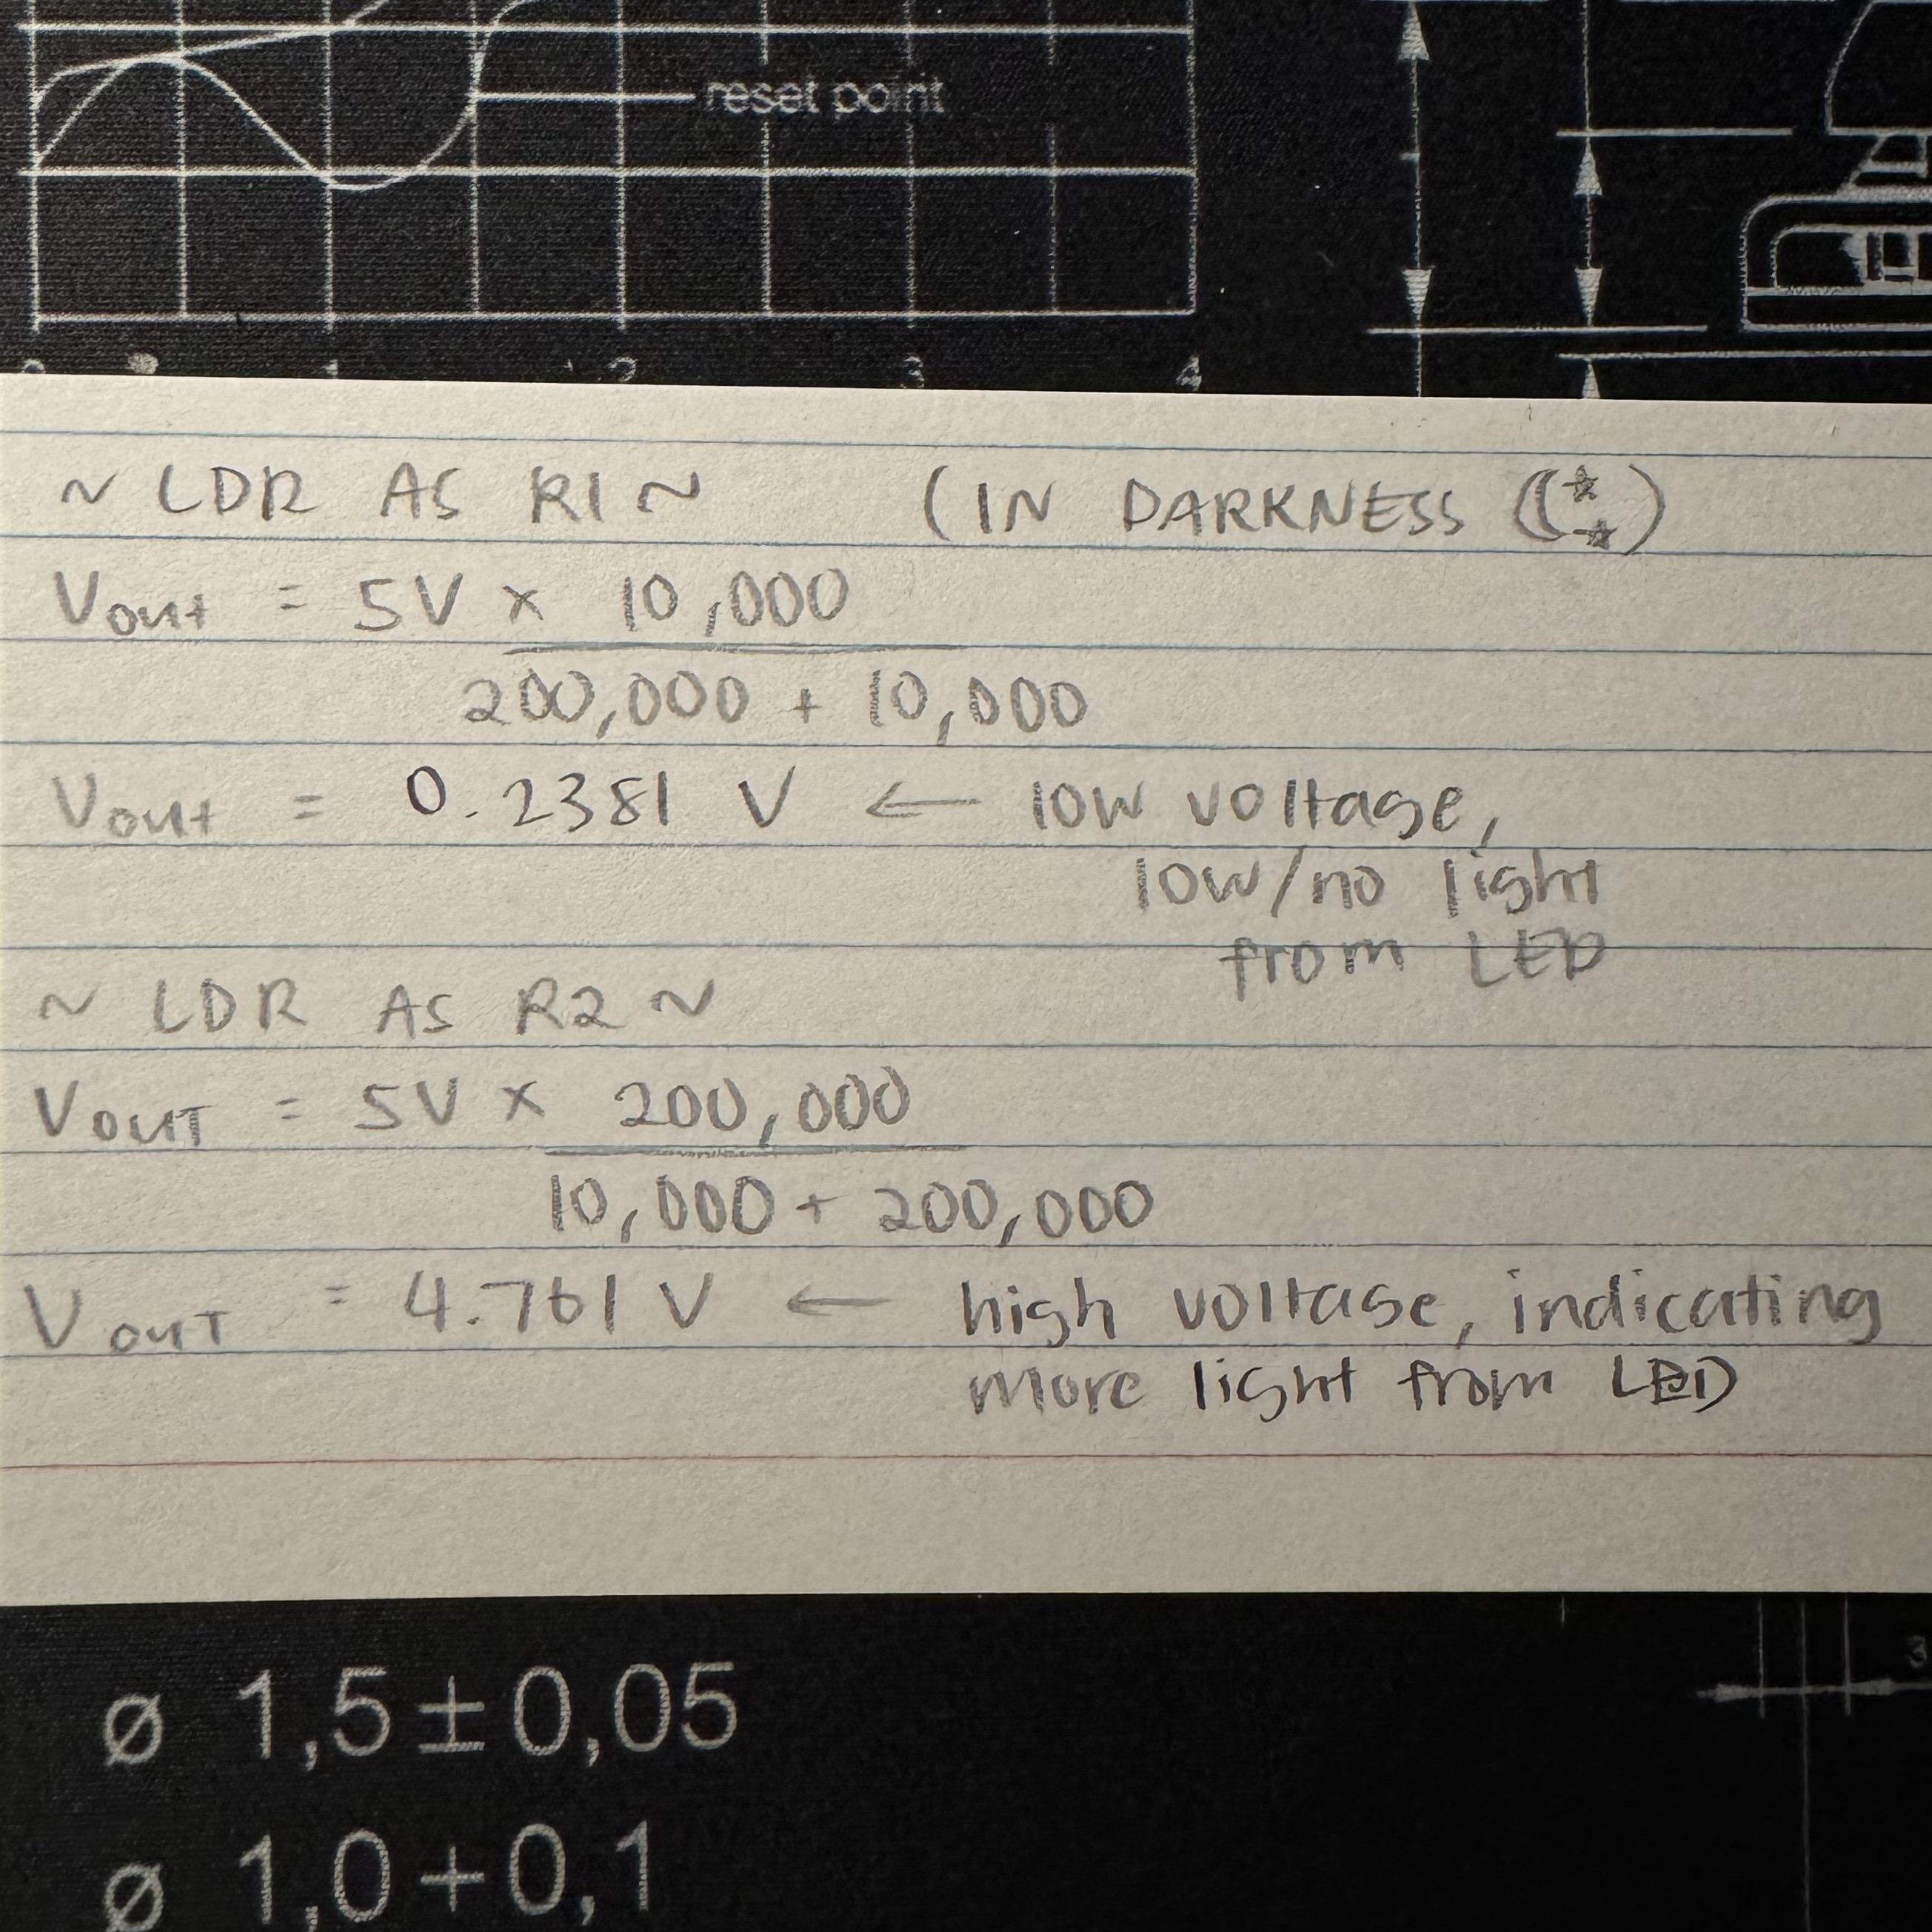 reset point
1 2 3 4
~ LDR AS R1 ~ (IN DARKNESS )
Vout = 5V × 10,000
200,000 + 10,000
Vout = 0.2381 V ← low voltage,
low/no light
from LED
~ LDR AS R2 ~
VOUT = 5V × 200,000
10,000 + 200,000
VOUT = 4.761 V ← high voltage, indicating
more light from LED
ø 1,5±0,05
3
ø 1,0+0,1